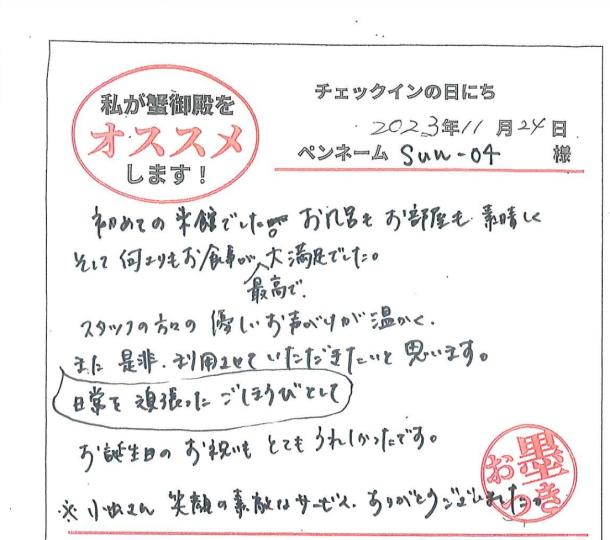 私が蟹御殿を
オススメ
します！
チェックインの日にち
2023年11月24日
ペンネーム Sun-04 様
初めての来館でした。お風呂もお部屋も素晴しく
そして何よりもお食事が大満足でした。
最高で、
スタッフの方々の優しいお声がけが温かく、
また是非、利用させていただきたいと思います。
日常を頑張ったごほうびとして
お誕生日のお祝いもとてもうれしかったです。
※小出さん 笑顔の素敵なサービス、ありがとうございました。
お墨つき